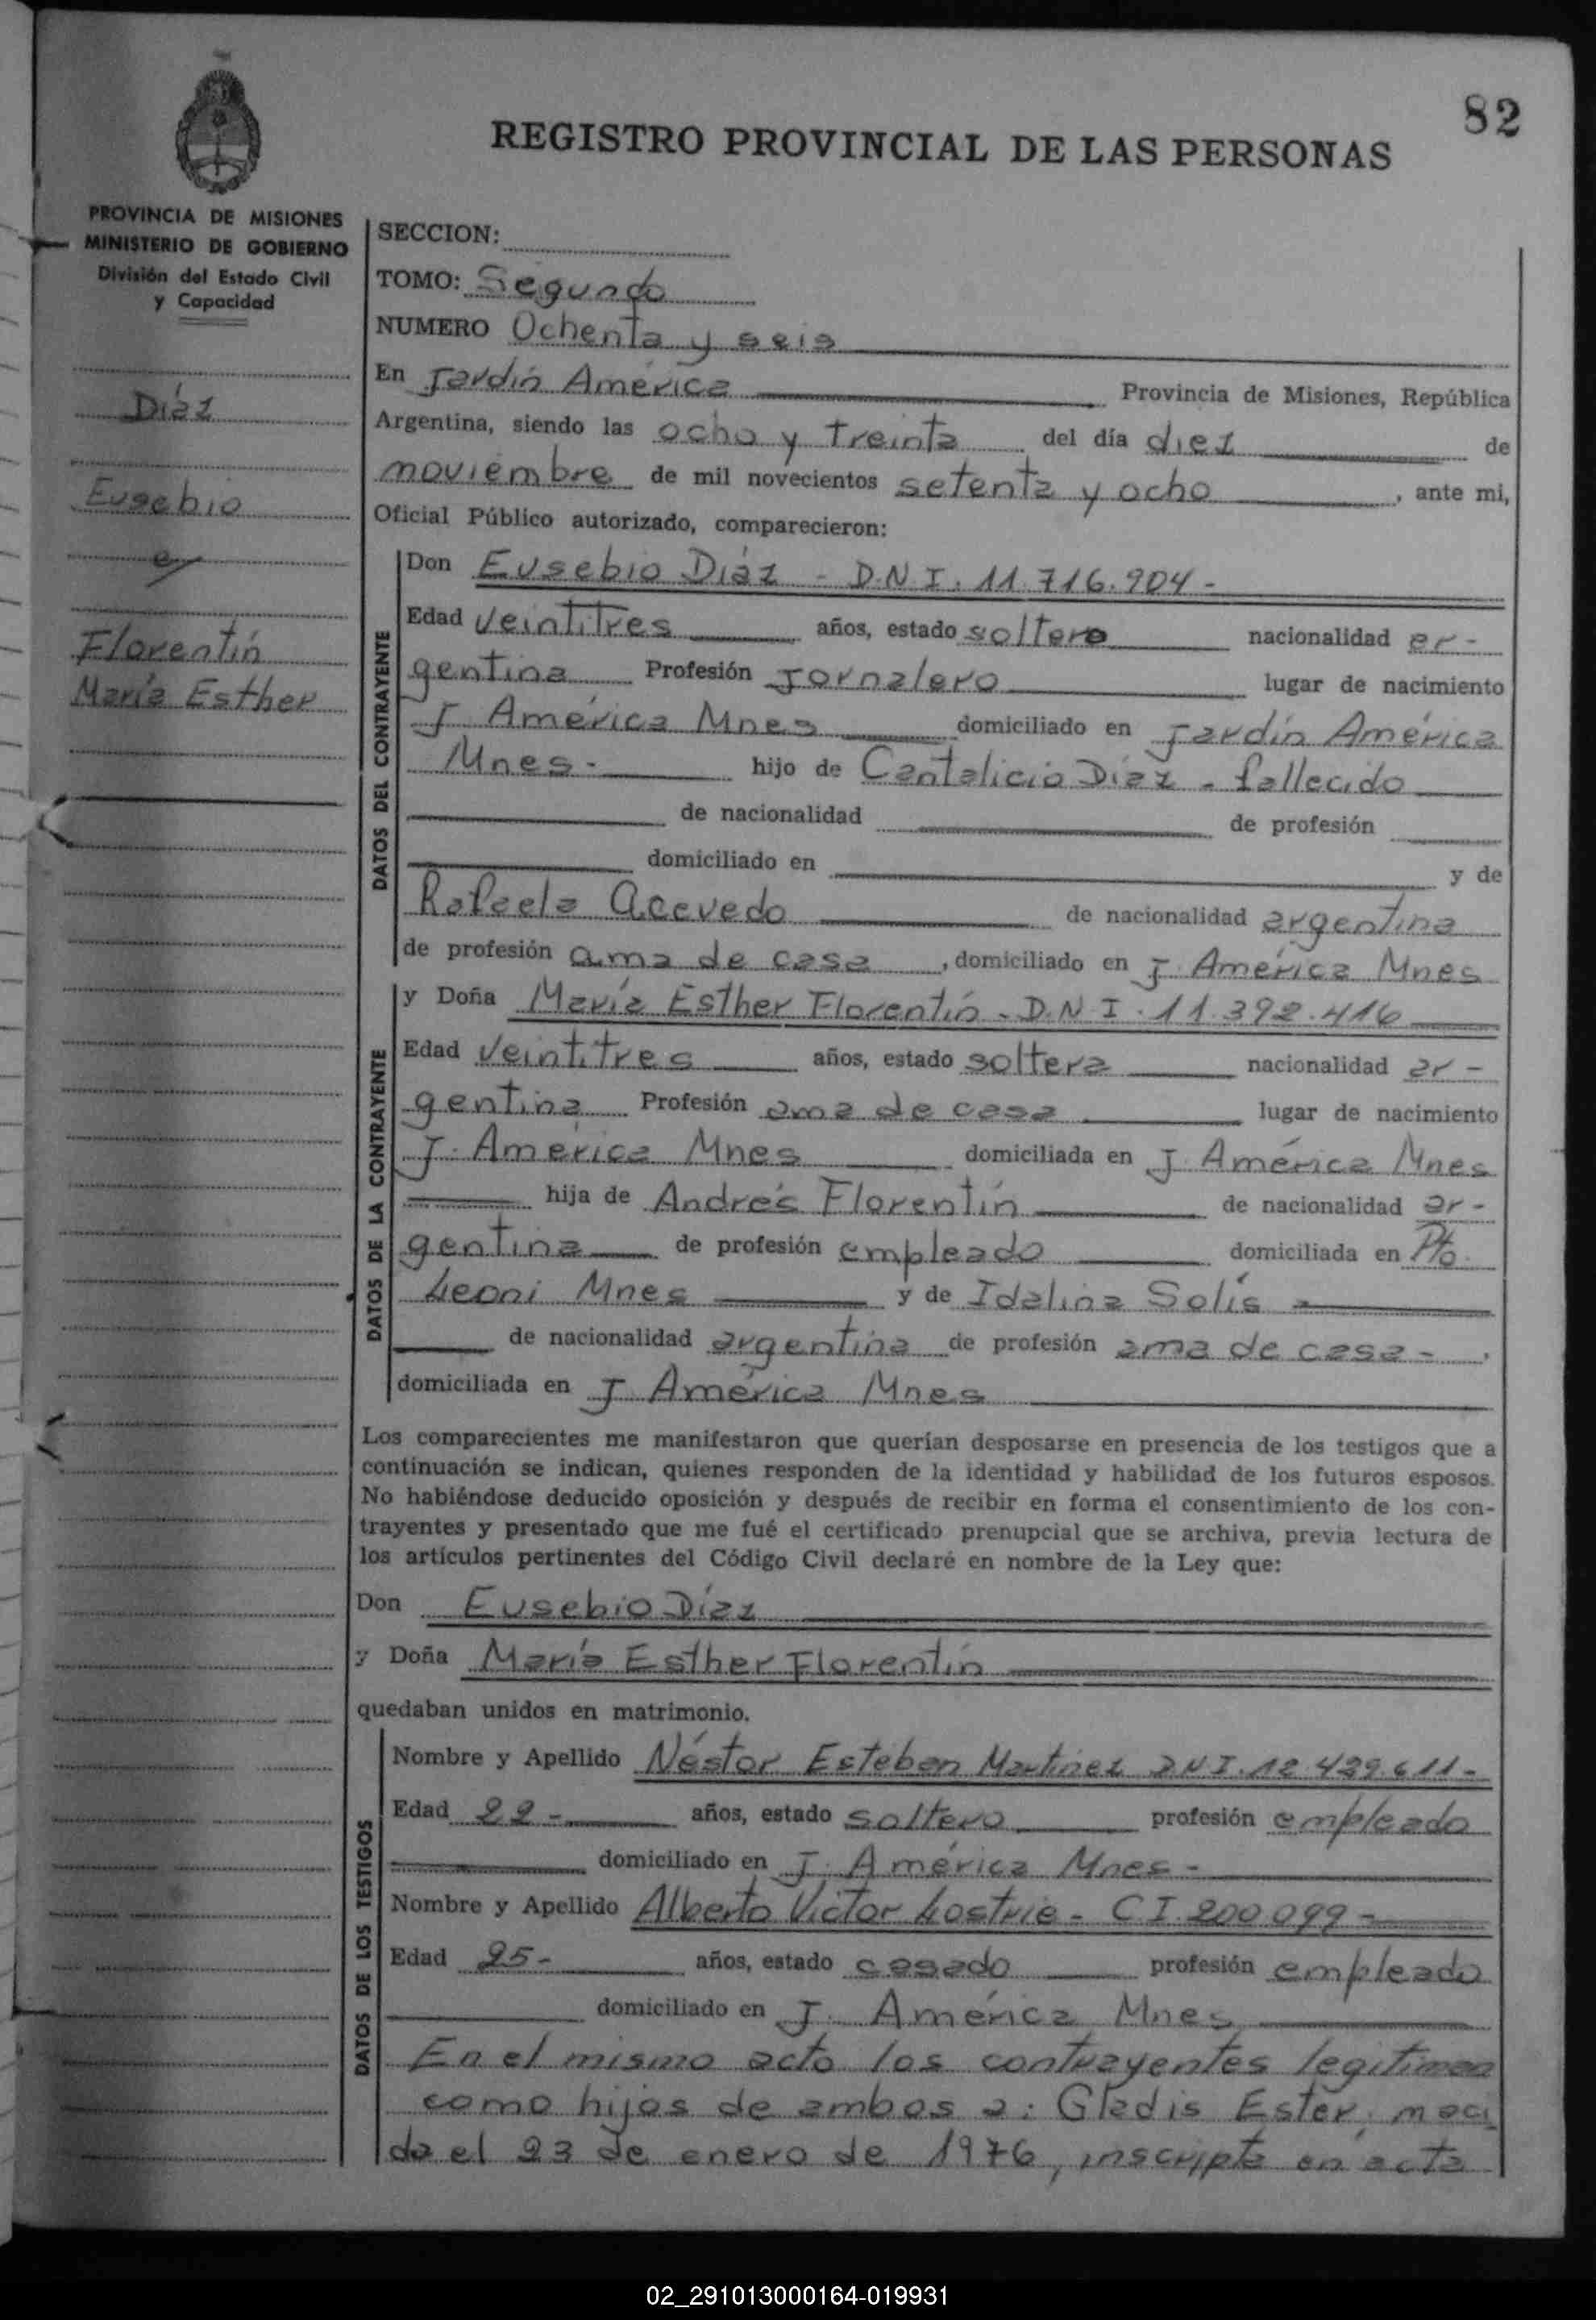 82
REGISTRO PROVINCIAL DE LAS PERSONAS
PROVINCIA DE MISIONES
MINISTERIO DE GOBIERNO
División del Estado Civil
y Capacidad
Díaz
Eusebio
y
Florentín
María Esther
SECCION:
TOMO: Segundo
NUMERO Ochenta y seis
En Jardín América Provincia de Misiones, República
Argentina, siendo las ocho y treinta del día diez de
noviembre de mil novecientos setenta y ocho, ante mi,
Oficial Público autorizado, comparecieron:
DATOS DEL CONTRAYENTE
Don Eusebio Díaz - D.N.I. 11.716.904 -
Edad veintitres años, estado soltero nacionalidad ar-
gentina Profesión Jornalero lugar de nacimiento
J. América Mnes domiciliado en Jardín América
Mnes.- hijo de Cantalicio Díaz - fallecido
de nacionalidad de profesión
domiciliado en y de
Rafaela Acevedo de nacionalidad argentina
de profesión ama de casa, domiciliado en J. América Mnes
DATOS DE LA CONTRAYENTE
y Doña María Esther Florentín - D.N.I. 11.392.416
Edad veintitres años, estado soltera nacionalidad ar-
gentina Profesión ama de casa lugar de nacimiento
J. América Mnes domiciliada en J. América Mnes
hija de Andrés Florentín de nacionalidad ar-
gentina de profesión empleado domiciliada en Pto.
Leoni Mnes y de Idalina Solís
de nacionalidad argentina de profesión ama de casa - ,
domiciliada en J. América Mnes
Los comparecientes me manifestaron que querían desposarse en presencia de los testigos que a
continuación se indican, quienes responden de la identidad y habilidad de los futuros esposos.
No habiéndose deducido oposición y después de recibir en forma el consentimiento de los con-
trayentes y presentado que me fué el certificado prenupcial que se archiva, previa lectura de
los artículos pertinentes del Código Civil declaré en nombre de la Ley que:
Don Eusebio Díaz
y Doña María Esther Florentín
quedaban unidos en matrimonio.
DATOS DE LOS TESTIGOS
Nombre y Apellido Néstor Esteban Martinez D.N.I. 12.429.611 -
Edad 22 - años, estado soltero profesión empleado
domiciliado en J. América Mnes -
Nombre y Apellido Alberto Victor - C.I. 200.099 -
Edad 25 - años, estado casado profesión empleado
domiciliado en J. América Mnes
En el mismo acto los contrayentes legitiman
como hijos de ambos a: Gladis Ester, naci
da el 23 de enero de 1976, inscripta en acta
02_291013000164-019931